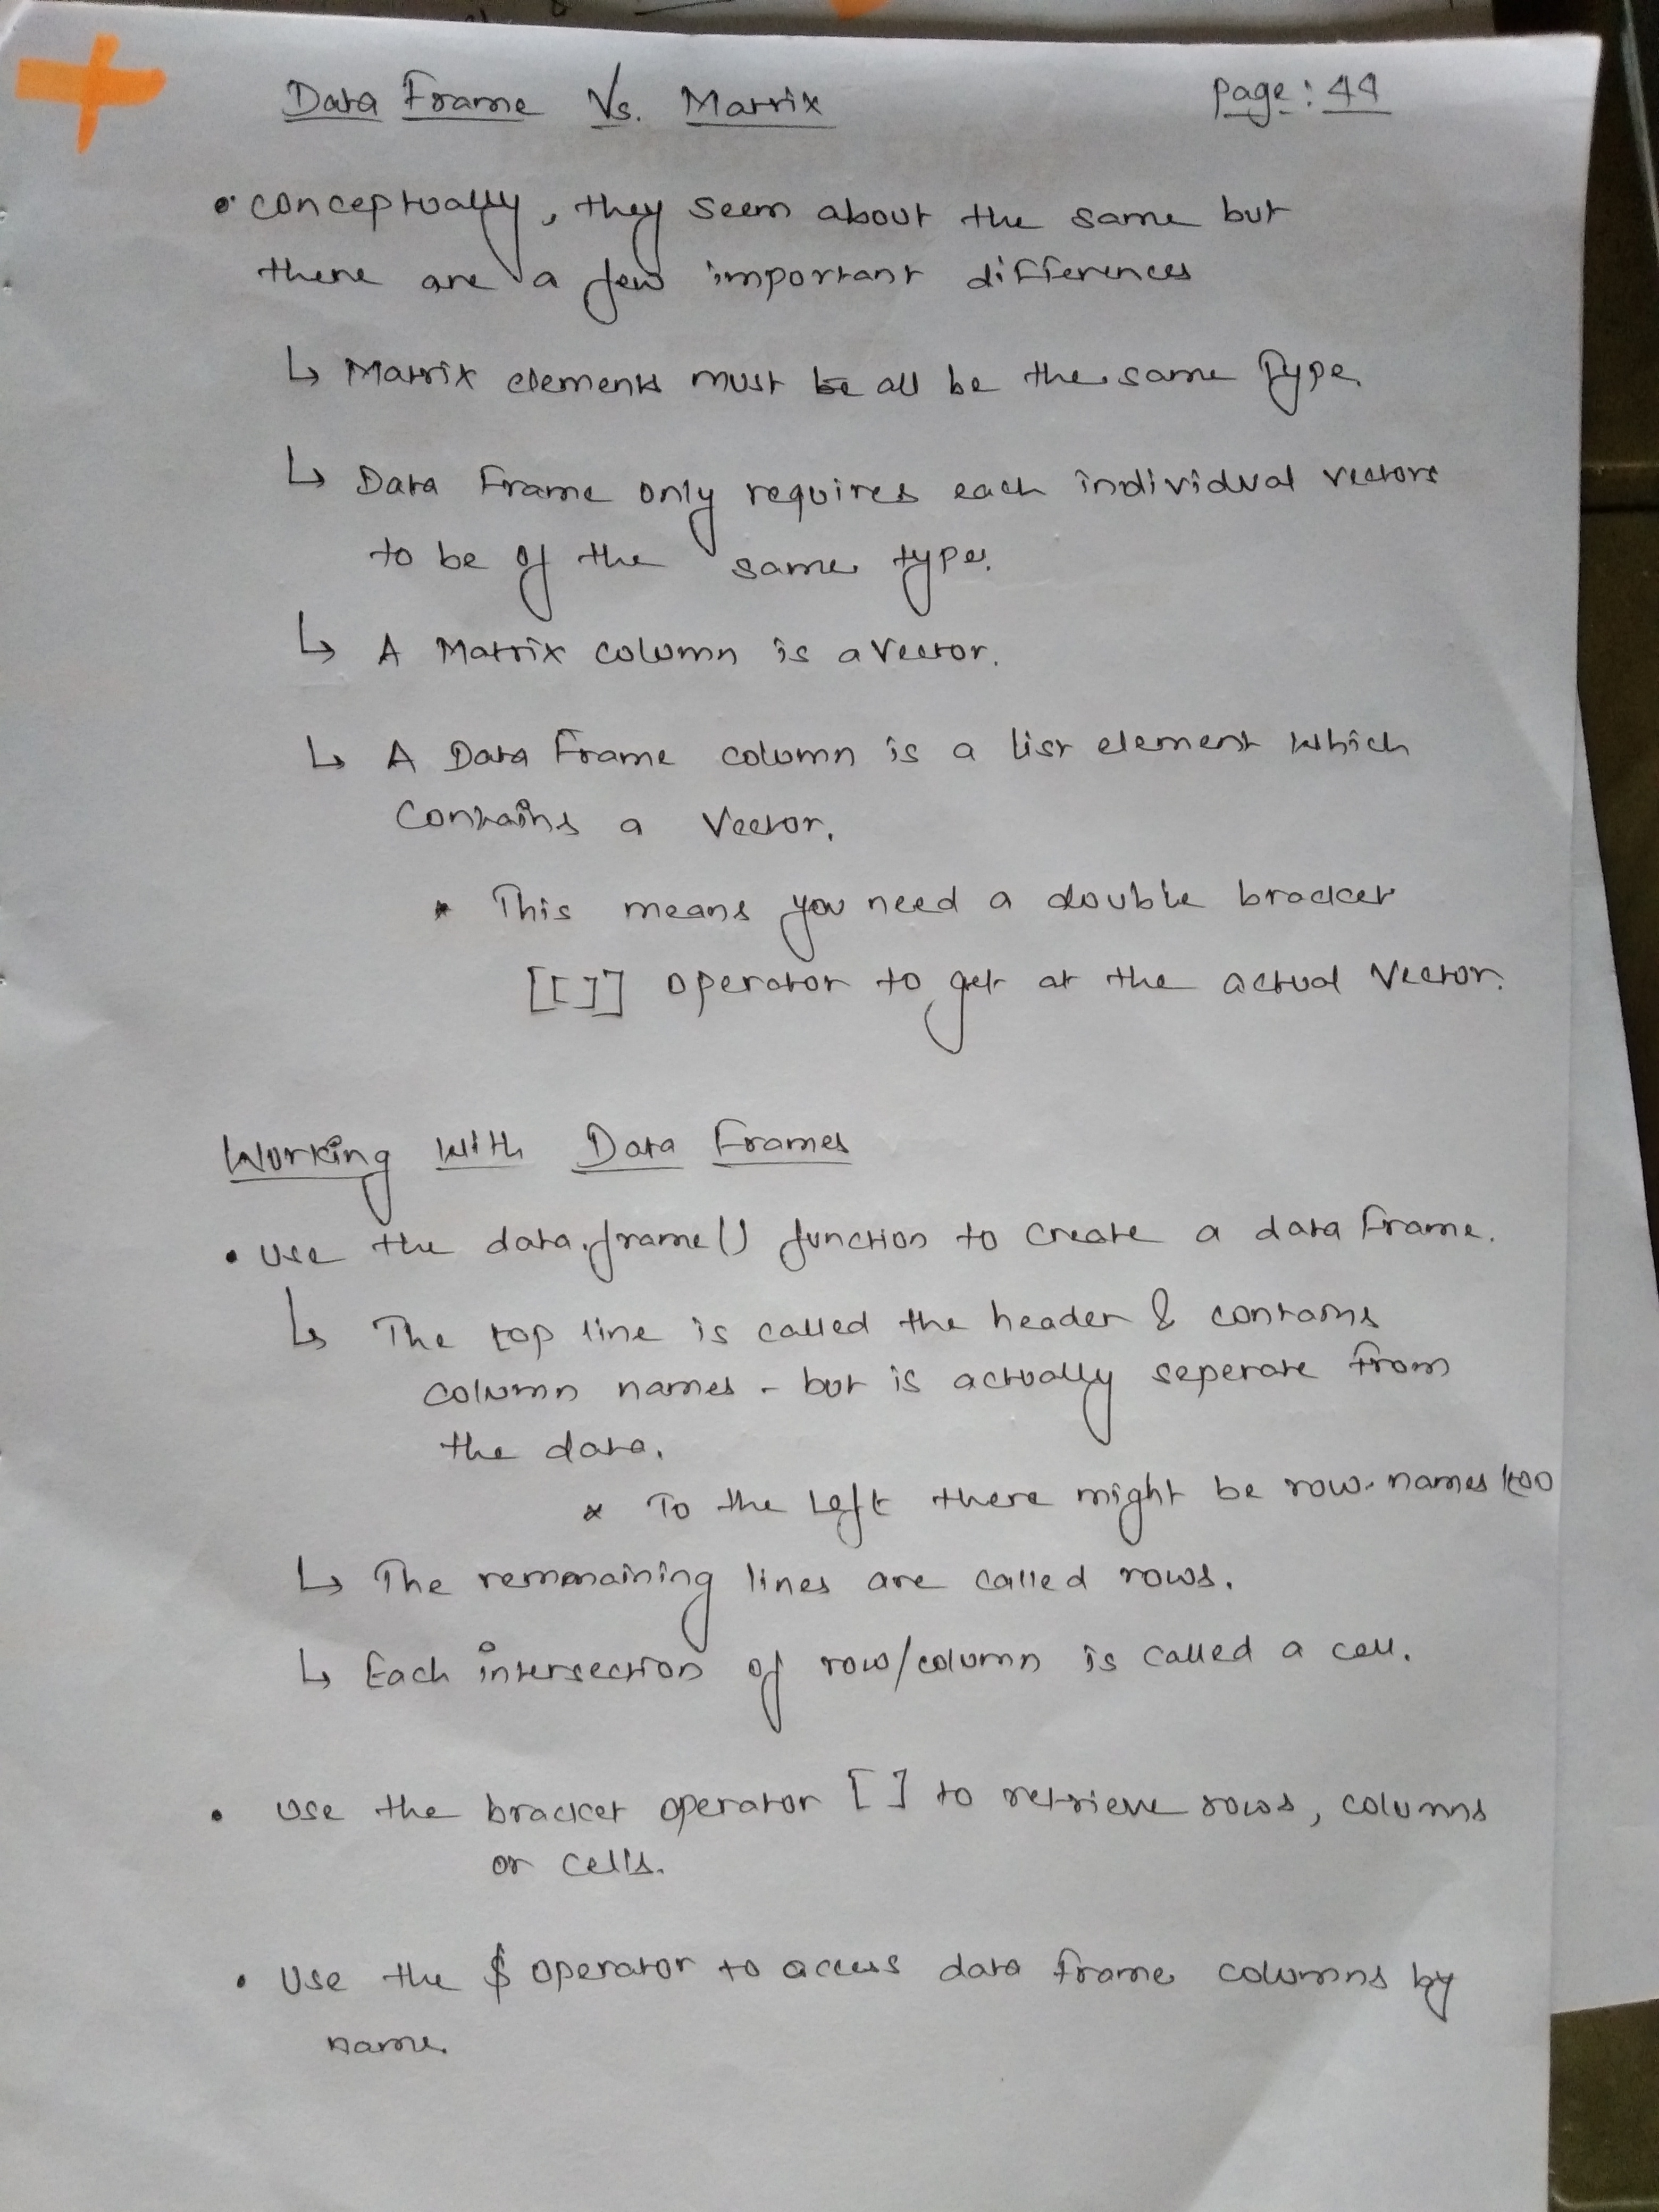 Data Frame Vs. Matrix
Page: 44
• conceptually, they seem about the same but
there are a few important differences
↳ Matrix elements must be all be the same Type.
↳ Data Frame only requires each individual vectors
to be of the same type.
↳ A Matrix column is a vector.
↳ A Data Frame column is a list element which
contains a vector.
* This means you need a double bracket
[[]] operator to get at the actual vector.
Working with Data Frames
• Use the data.frame() function to create a data frame.
↳ The top line is called the header & contains
column names - but is actually seperate from
the data.
* To the Left there might be row names too
↳ The remmaining lines are called rows.
↳ Each intersection of row/column is called a cell.
• Use the bracket operator [ ] to retrieve rows, columns
or cells.
• Use the $ operator to access data frame columns by
name.